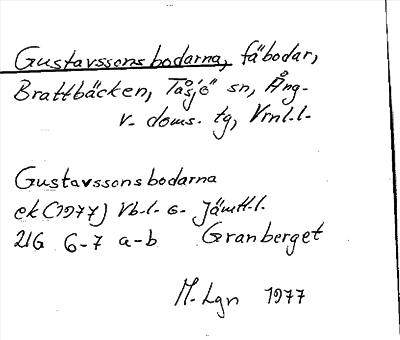 Gustavssonsbodarna, fäbodar,
Brattbäcken, Tåsjö sn, Ång-
v. doms. tg, Vrnl.l.
Gustavssonsbodarna
ek (1977) Vb.l. o. Jämtl.l.
21G 6-7 a-b Granberget
M. Lgn 1977